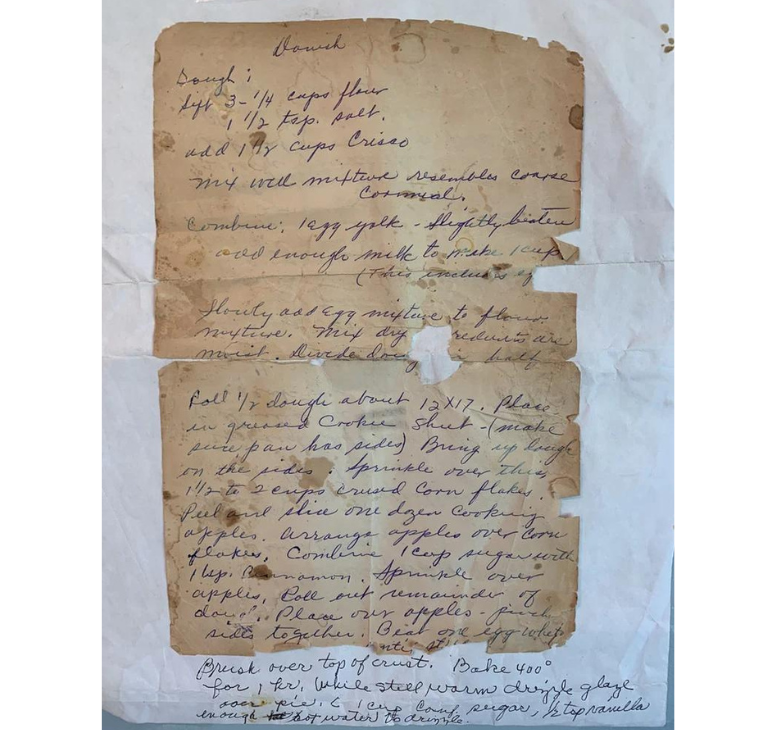 Danish
Dough:
Sift 3-1/4 cups flour
1 1/2 tsp. salt.
add 1 1/2 cups Crisco
Mix well mixture resembles coarse
Cornmeal.
Combine: 1 egg yolk - Slightly beaten
add enough milk to make 1 cup
(This includes eg
Slowly add Egg mixture to flour
mixture. Mix dry redients are
moist. Divide in half
Roll 1/2 dough about 12X17. Place
in greased Cookie Sheet - (make
sure pan has sides) Bring up dough
on the sides. Sprinkle over this,
1 1/2 to 2 cups crused Corn flakes.
Peel and slice one dozen Cooking
apples. arrange apples over Corn
flakes. Combine 1 cup sugar with
1 tsp. Cinnamon. Sprinkle over
apples. Roll out remainder of
Place over apples - pinch
sides together. Beat one egg white
Brush over top of crust. Bake 400°
for 1 hr. While still warm drizzle glaze
over pie. 1 cup Conf. sugar, 1/2 tsp vanilla
enough hot water to drizzle.